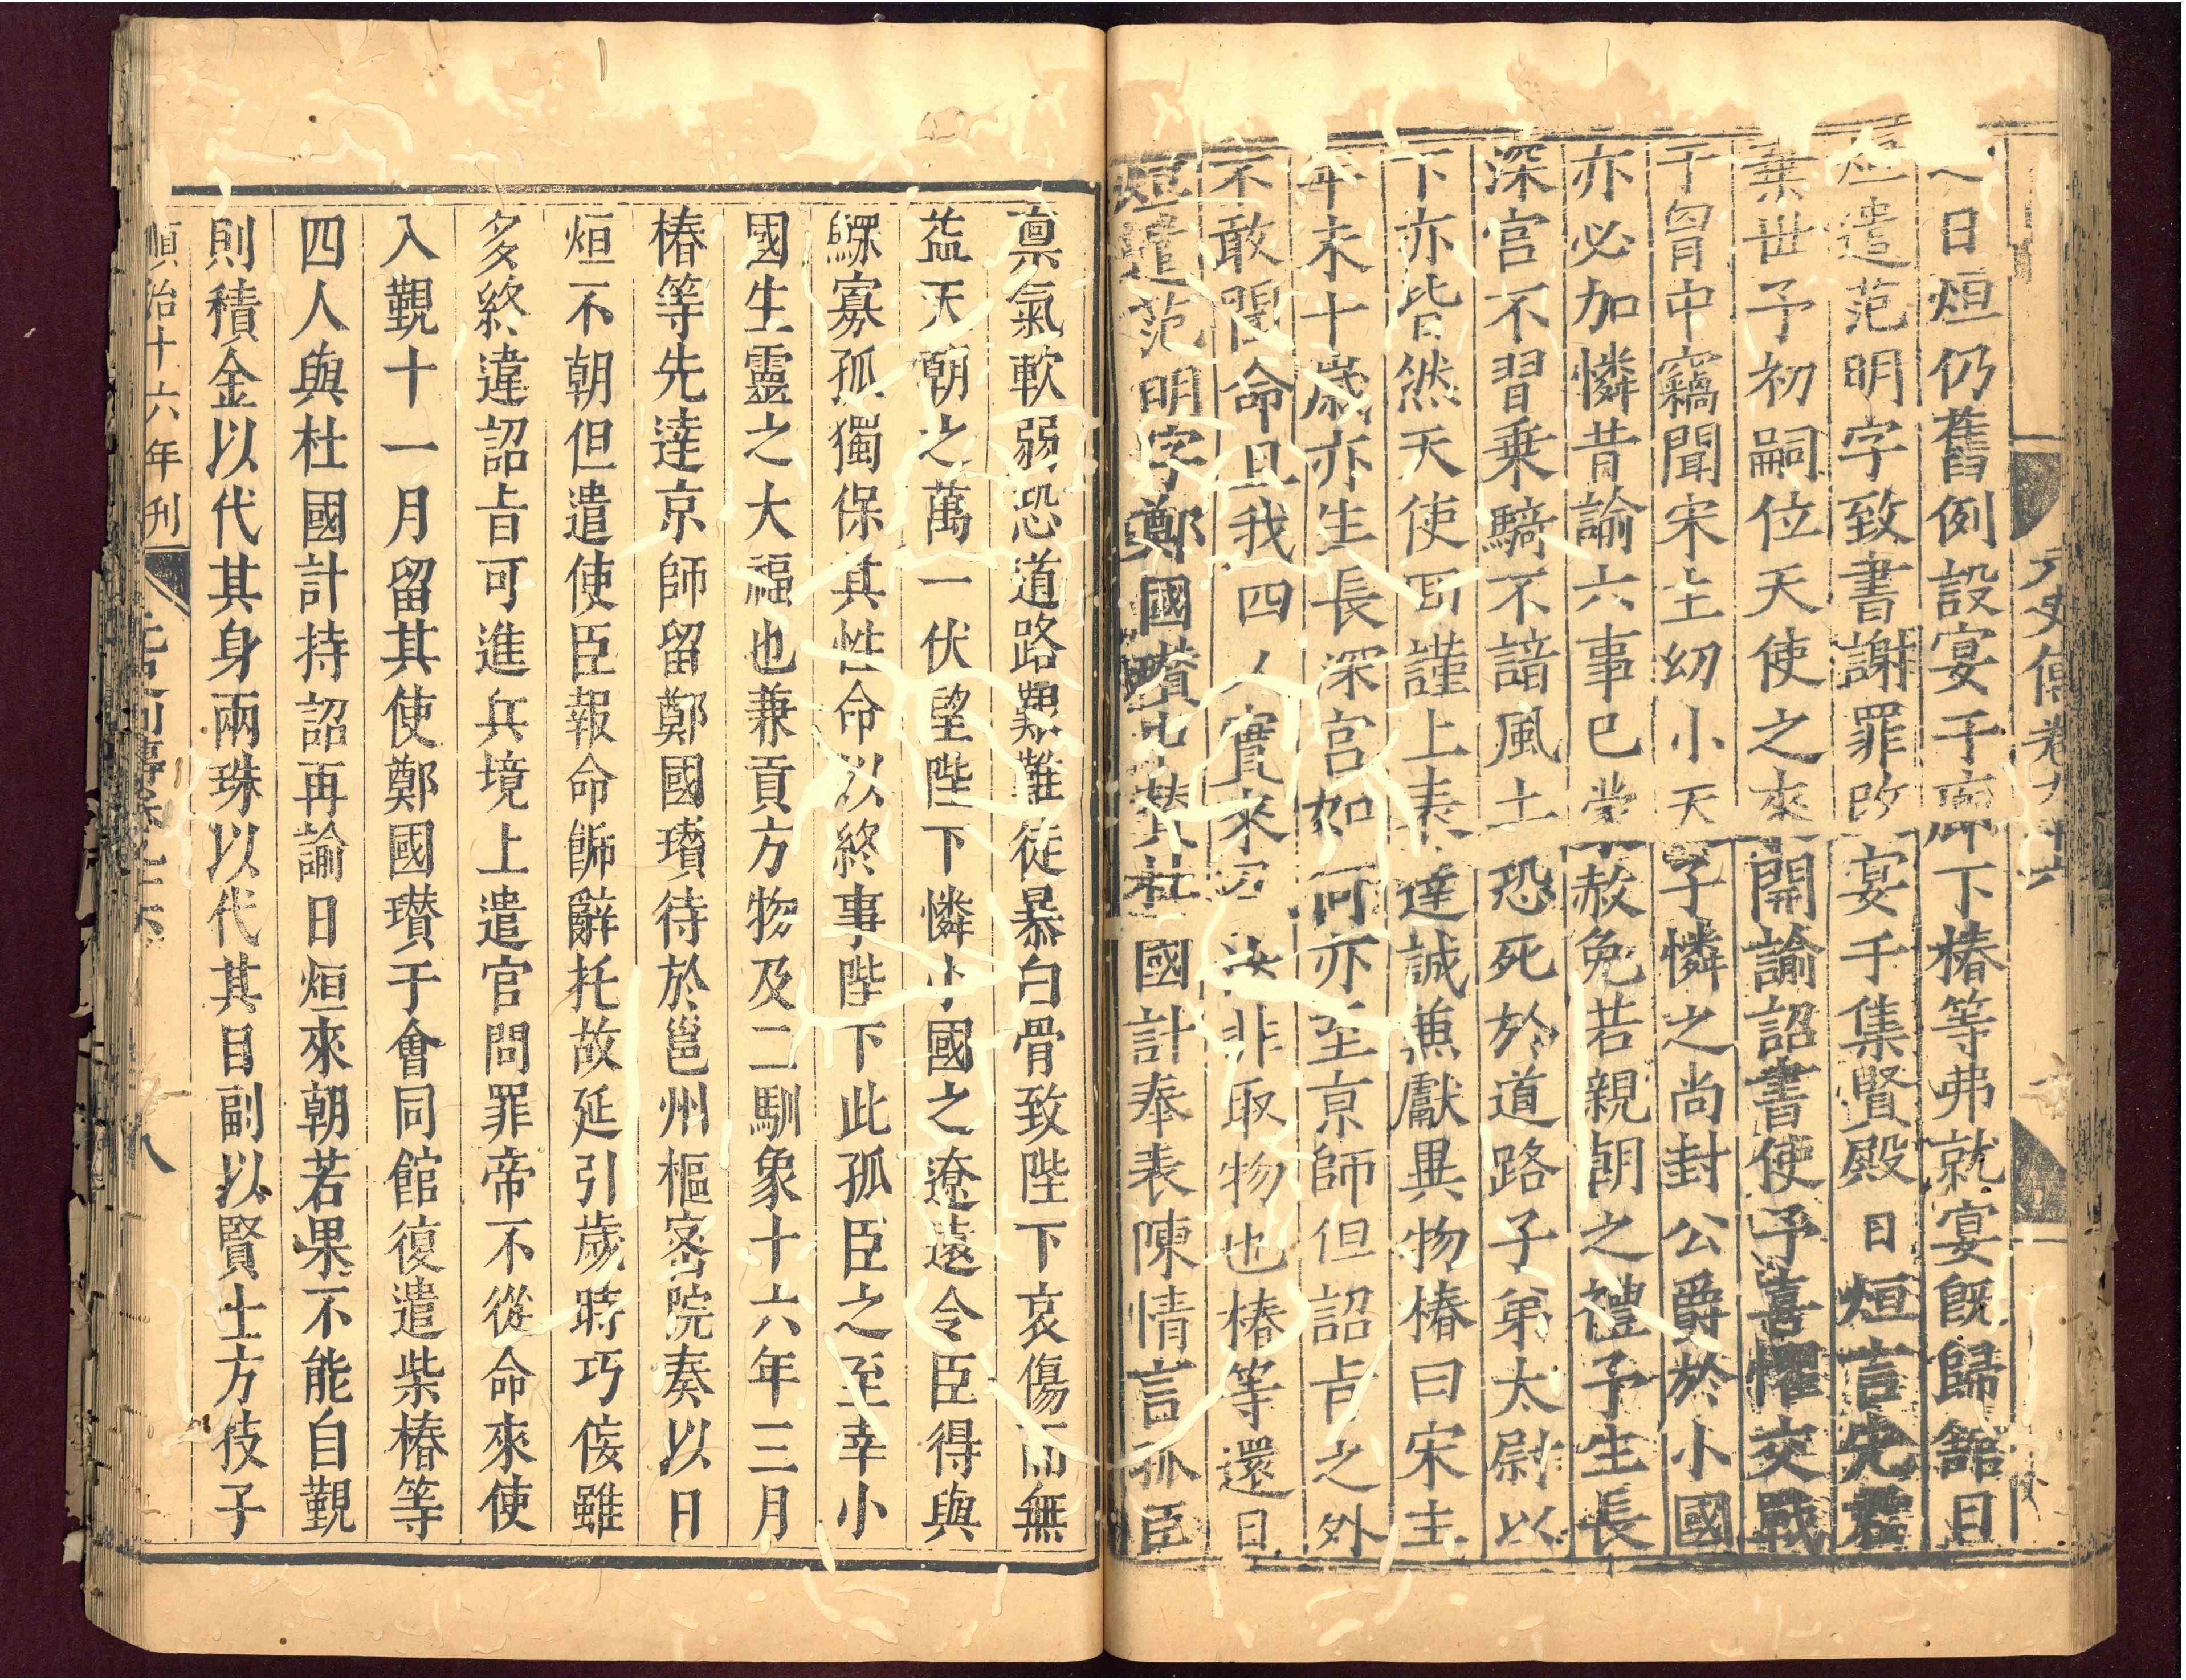 元史傳卷九十六
一日烜仍舊例設宴于廊下椿等弗就宴旣歸館日
烜遣范明字致書謝罪改宴于集賢殿日烜言先君
棄世予初嗣位天使之來開諭詔書使予喜懼交戰
于胷中竊聞宋主幼小天子憐之尚封公爵於小國
亦必加憐昔諭六事已蒙赦免若親朝之禮予生長
深宮不習乗騎不諳風土恐死於道路子弟太尉以
下亦皆然天使囬謹上表達誠兼獻異物椿曰宋主
年未十歲亦生長深宮如何亦至京師但詔旨之外
不敢聞命且我四人實來召汝非取物也椿等還日
烜遣范明字鄭國瓚中贊杜國計奉表陳情言孤臣
稟氣軟弱恐道路艱難徒暴白骨致陛下哀傷而無
益天朝之萬一伏望陛下憐小國之遼遠令臣得與
鰥寡孤獨保其性命以終事陛下此孤臣之至幸小
國生靈之大福也兼貢方物及二馴象十六年三月
椿等先逹京師留鄭國瓚待於邕州樞密院奏以日
烜不朝但遣使臣報命飾辭托故延引歲時巧佞雖
多終違詔旨可進兵境上遣官問罪帝不從命來使
入覲十一月留其使鄭國瓚于會同館復遣柴椿等
四人與杜國計持詔再諭日烜來朝若果不能自覲
則積金以代其身兩珠以代其目副以賢士方技子
順治十六年刊
八